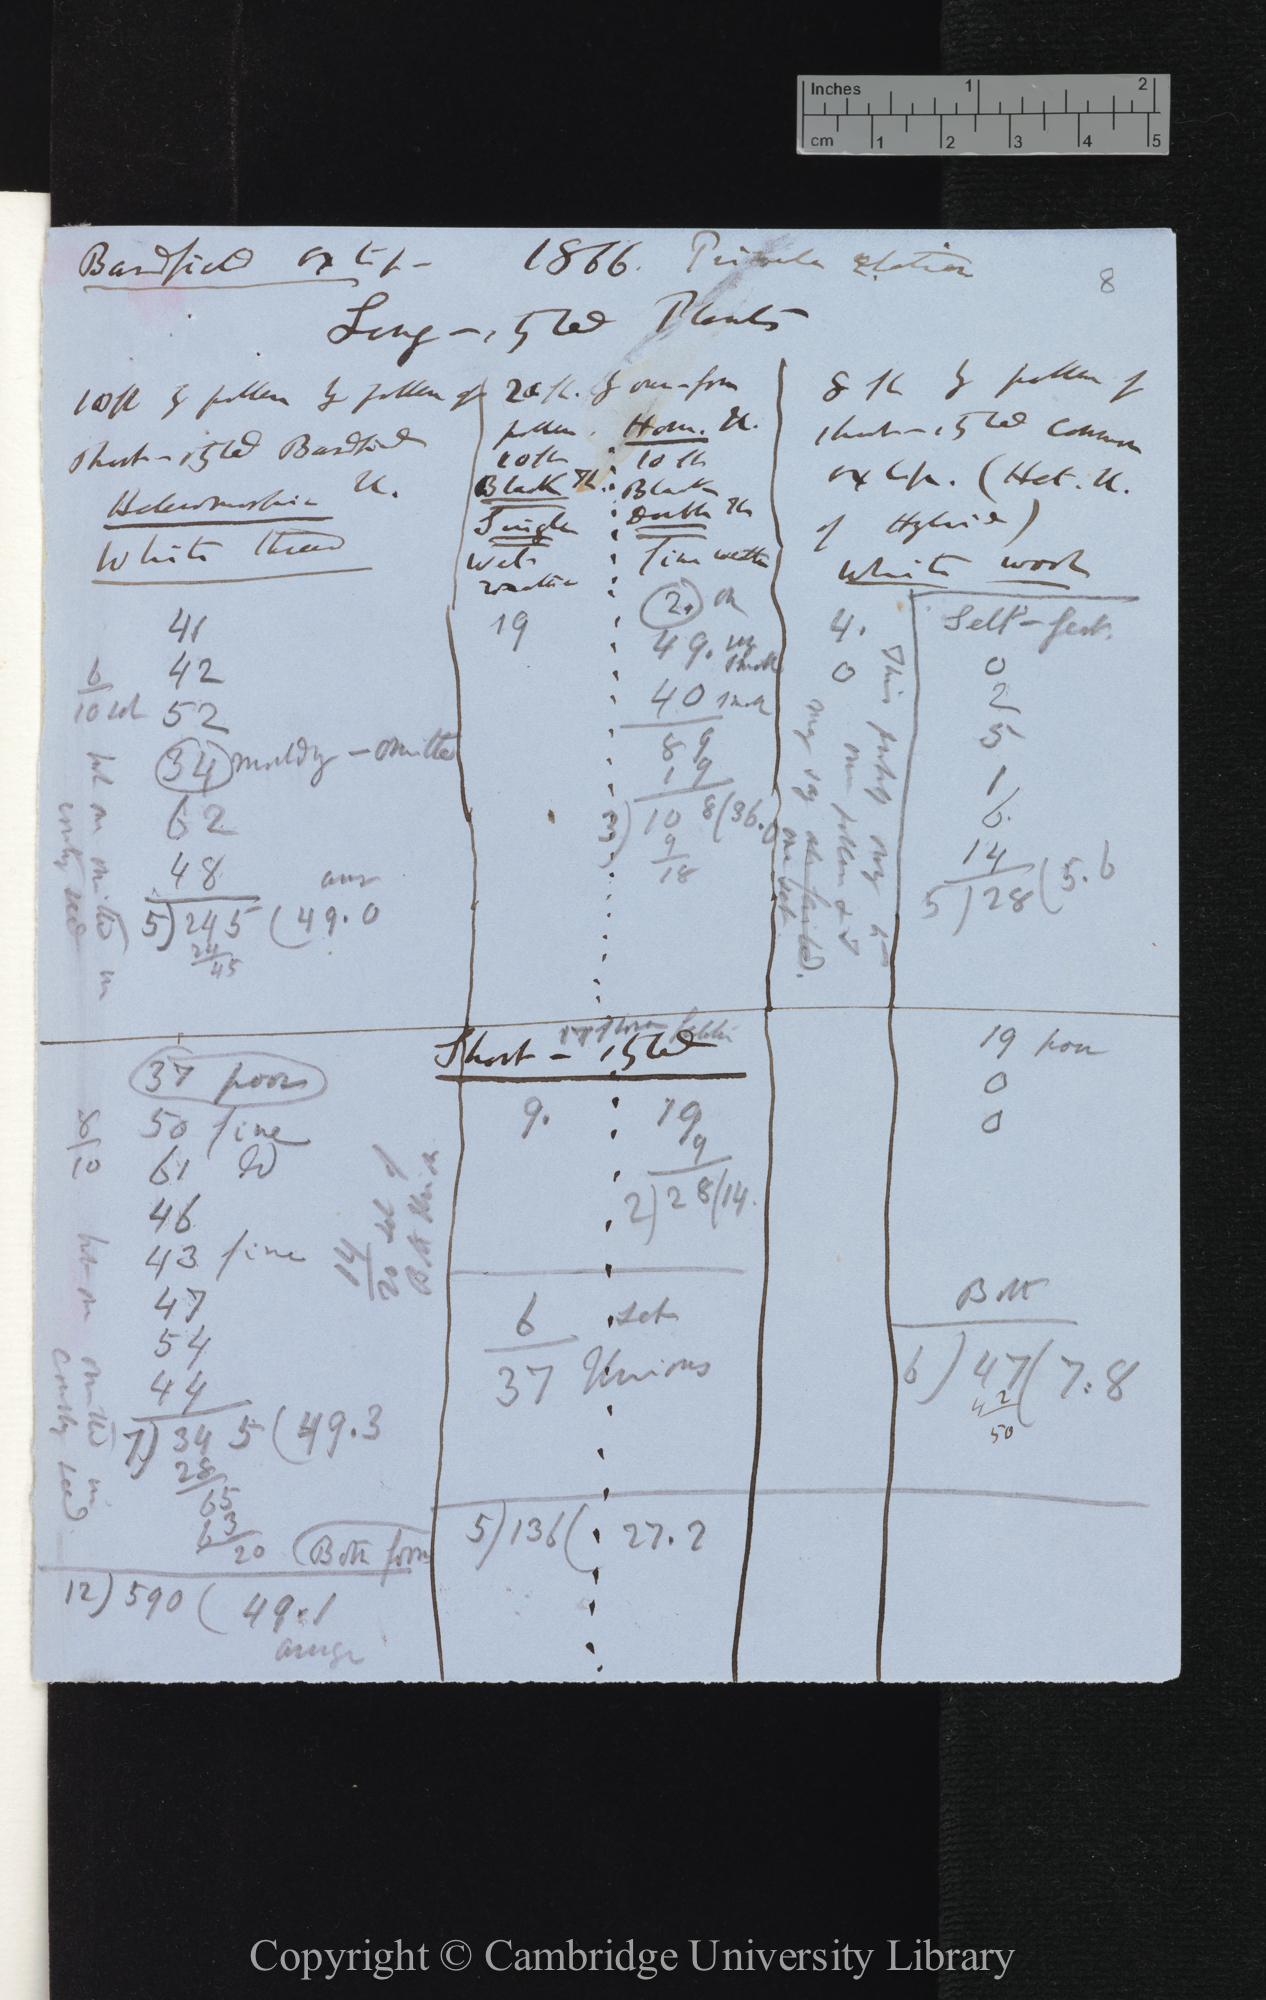 Inches 1 2
cm 1 2 3 4 5
Bardfield oxlip - 1866. Primula elatior
8
Long-styled Plants
10 fl by pollen by pollen of
short-styled Bardfield
Heteromorphic U.
White thread
41
42
52
34 mouldy - omitted
62
48
5) 245 (49.0
24
45
6/10 set
but one omitted in
counting seed
20 fl. by own-form
pollen. Hom. U.
10 fl
Black Th.
Single
Wet
weather
19
10 fl
Black
Double Th
Fine weather
2.
49.
40
89
19
3) 108 (36.0
9
18
8 fl by pollen of
short-styled common
oxlip. (Het. U.
of Hybrid)
White wool
4.
0
This pretty
own pollen &
Self-fert.
0
2
5
1
6.
14
5) 28 (5.6
Short-styled
37 poor
50 fine
61 Do
46
43 fine
47
54
44
7) 345 (49.3
28
65
63
20
8/10
but one omitted in
counting seed
14/20 set of
Both Unions
Both forms
12) 590 (49.1
average
9.
19
9
2) 28 (14.
6 set
37 Unions
5) 136 ( 27.2
19 poor
0
0
Both
6) 47 (7.8
42
50
Copyright © Cambridge University Library